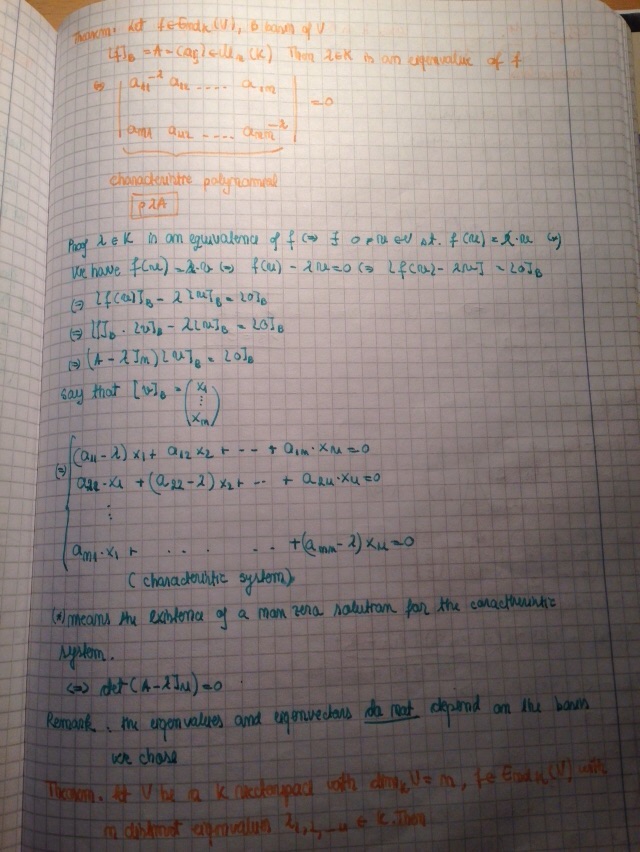 Theorem. Let f∈End_K(V), B basis of V
[f]_B = A = (a_ij) ∈ M_n(K) Then λ∈K is an eigenvalue of f
⇔ | a_11-λ a_12 .... a_1n |
= 0
| a_n1 a_n2 .... a_nn-λ |
characteristic polynomial
p λA
Proof λ∈K is an equivalence of f ⇔ ∃ 0≠v∈V s.t. f(v) = λ·v (*)
We have f(v) = λ·v ⇔ f(v) - λv = 0 ⇔ [f(v) - λv] = [0]_B
⇔ [f(v)]_B - λ[v]_B = [0]_B
⇔ [f]_B · [v]_B - λ[v]_B = [0]_B
⇔ (A - λI_n)[v]_B = [0]_B
say that [v]_B = (x_1 ⋮ x_n)
(a_11 - λ)x_1 + a_12 x_2 + --- + a_1n·x_n = 0
⇔ a_21·x_1 + (a_22 - λ)x_2 + -- + a_2n·x_n = 0
⋮
a_n1·x_1 + . . . . . -- +(a_nn - λ)x_n = 0
(characteristic system)
(*) means the existence of a non zero solution for the caractheristic
system.
⇔ det(A - λI_n) = 0
Remark. the eigenvalues and eigenvectors do not depend on the basis
we chose
Theorem. Let V be a K vectorspace with dim_K V = n, f∈End_K(V) with
n distinct eigenvalues ∈ K. Then